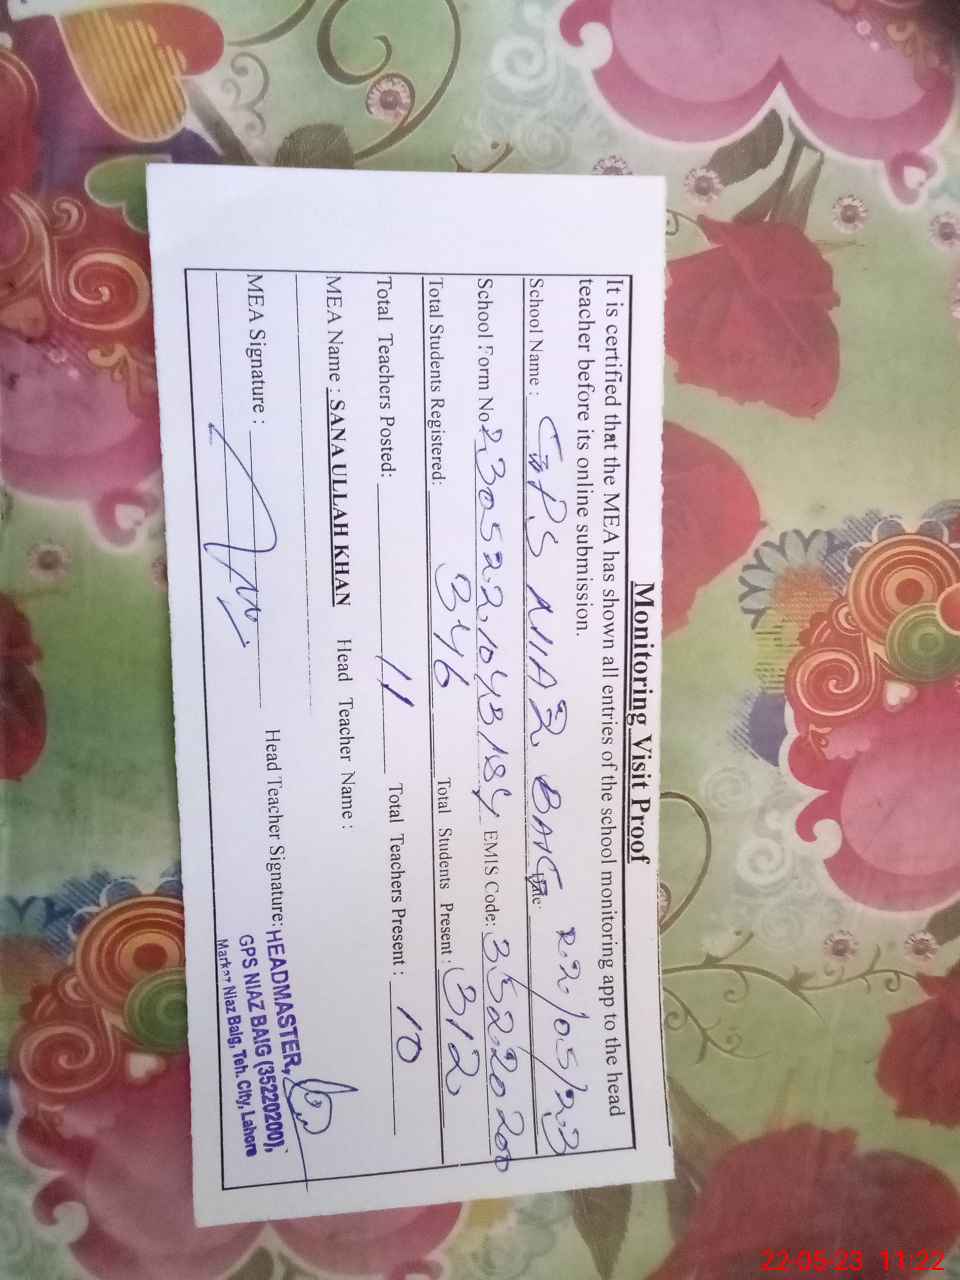 Monitoring Visit Proof
It is certified that the MEA has shown all entries of the school monitoring app to the head
teacher before its online submission.
School Name : GPS NIAZ BAIG Date: 22/05/23
School Form No 230522104318Y EMIS Code: 35220200
Total Students Registered: 346 Total Students Present : 312
Total Teachers Posted: 11 Total Teachers Present : 10
MEA Name : SANA ULLAH KHAN Head Teacher Name :
MEA Signature : Head Teacher Signature:
HEADMASTER,
GPS NIAZ BAIG (35220200),
Markaz Niaz Baig, Teh. City, Lahore
22-05-23 11:22